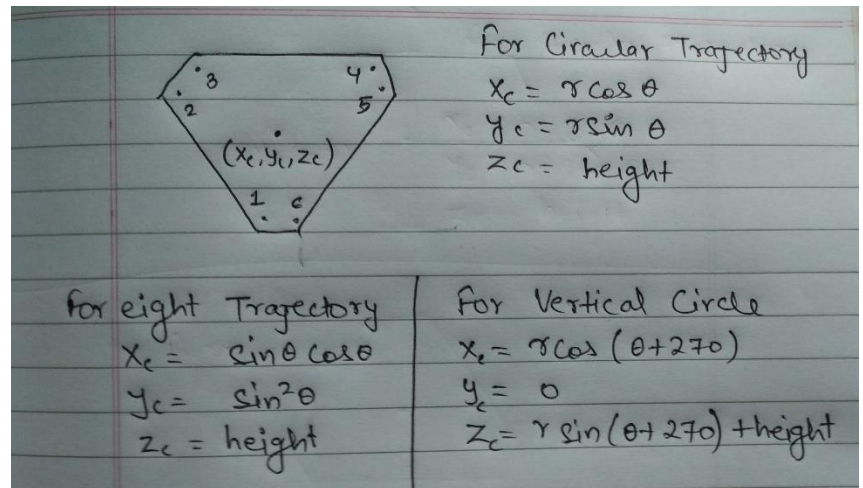 For Circular Trajectory
x_c = r cos θ
y_c = r sin θ
z_c = height
3
4
2
5
(x_c, y_c, z_c)
1 6
For eight Trajectory
x_c = sinθ cosθ
y_c = sin²θ
z_c = height
For Vertical Circle
x_c = r cos (θ+270)
y_c = 0
z_c = r sin (θ+270) + height